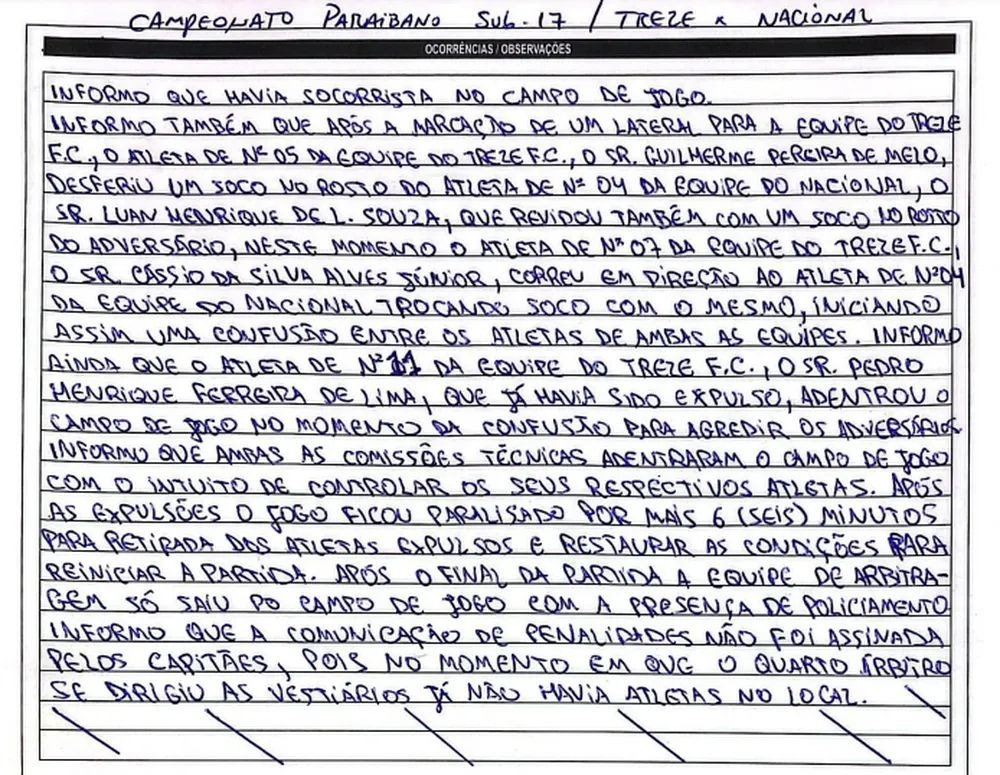 CAMPEONATO PARAIBANO SUB-17 / TREZE x NACIONAL
OCORRÊNCIAS / OBSERVAÇÕES
INFORMO QUE HAVIA SOCORRISTA NO CAMPO DE JOGO.
INFORMO TAMBÉM QUE APÓS A MARCAÇÃO DE UM LATERAL PARA A EQUIPE DO TREZE
F.C., O ATLETA DE Nº 05 DA EQUIPE DO TREZE F.C., O SR. GUILHERME PEREIRA DE MELO,
DESFERIU UM SOCO NO ROSTO DO ATLETA DE Nº 04 DA EQUIPE DO NACIONAL, O
SR. LUAN HENRIQUE DE L. SOUZA, QUE REVIDOU TAMBÉM COM UM SOCO NO ROSTO
DO ADVERSÁRIO, NESTE MOMENTO O ATLETA DE Nº 07 DA EQUIPE DO TREZE F.C.,
O SR. CÁSSIO DA SILVA ALVES JÚNIOR, CORREU EM DIREÇÃO AO ATLETA DE Nº 04
DA EQUIPE DO NACIONAL TROCANDO SOCO COM O MESMO, INICIANDO
ASSIM UMA CONFUSÃO ENTRE OS ATLETAS DE AMBAS AS EQUIPES. INFORMO
AINDA QUE O ATLETA DE Nº 11 DA EQUIPE DO TREZE F.C., O SR. PEDRO
HENRIQUE FERREIRA DE LIMA, QUE JÁ HAVIA SIDO EXPULSO, ADENTROU O
CAMPO DE JOGO NO MOMENTO DA CONFUSÃO PARA AGREDIR OS ADVERSÁRIOS.
INFORMO QUE AMBAS AS COMISSÕES TÉCNICAS ADENTRARAM O CAMPO DE JOGO
COM O INTUITO DE CONTROLAR OS SEUS RESPECTIVOS ATLETAS. APÓS
AS EXPULSÕES O JOGO FICOU PARALISADO POR MAIS 6 (SEIS) MINUTOS
PARA RETIRADA DOS ATLETAS EXPULSOS E RESTAURAR AS CONDIÇÕES PARA
REINICIAR A PARTIDA. APÓS O FINAL DA PARTIDA A EQUIPE DE ARBITRA-
GEM SÓ SAIU DO CAMPO DE JOGO COM A PRESENÇA DE POLICIAMENTO
INFORMO QUE A COMUNICAÇÃO DE PENALIDADES NÃO FOI ASSINADA
PELOS CAPITÃES, POIS NO MOMENTO EM QUE O QUARTO ÁRBITRO
SE DIRIGIU AS VESTIÁRIOS JÁ NÃO HAVIA ATLETAS NO LOCAL.